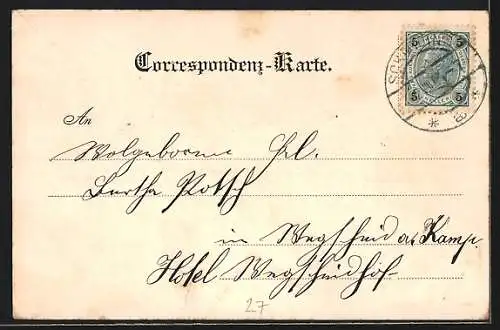 Correspondenz-Karte.
5 5
5 5
An
Wolgeborene Frl.
Bertha Potsch
in Wegscheid a/ Kamp
Hotel Wegscheidhof
27